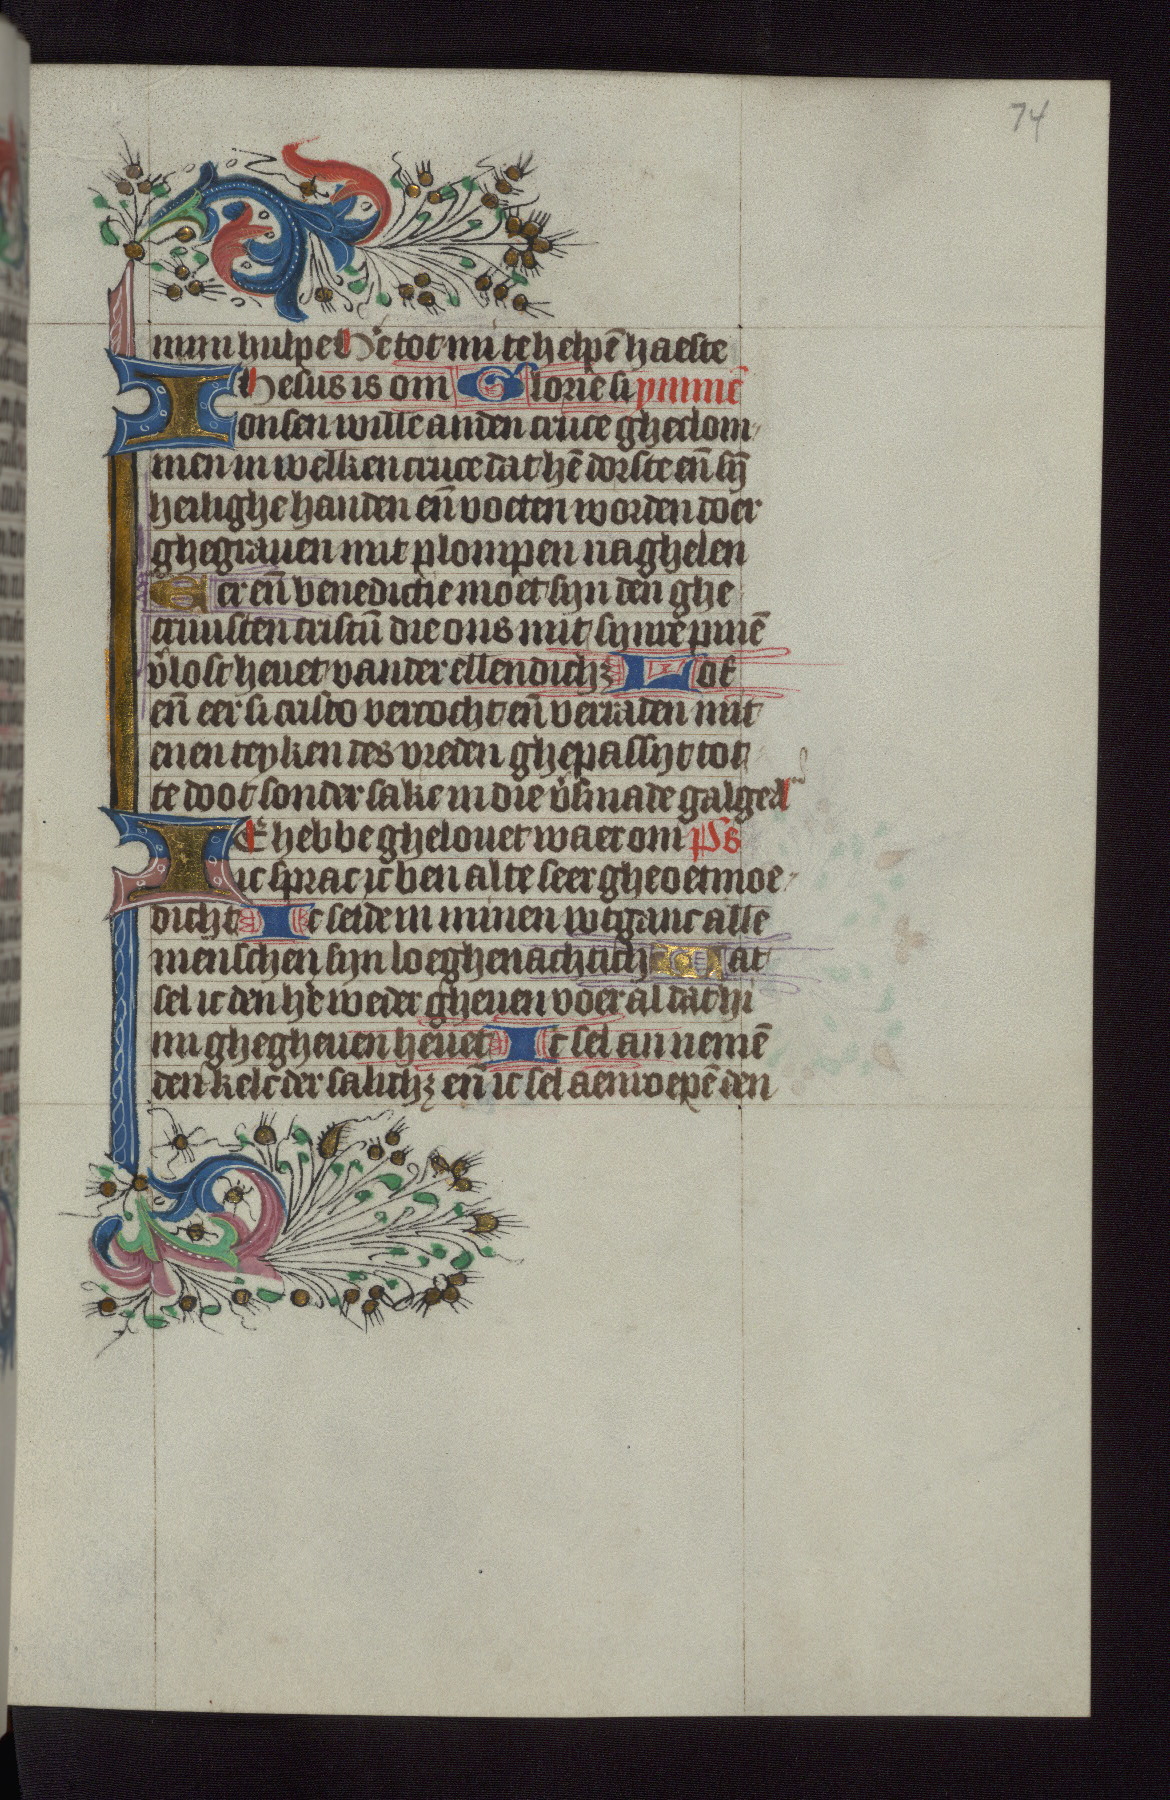 74
mijn hulpe He tot mi te helpē haeste
IHesus is om Glorie si ymmē
onsen wille an den cruce gheclom-
men in welken cruce dat hē dorste eñ sij̄
heilighe handen eñ voeten worden doer
ghegrauen mit plompen naghelen
Eer eñ benedictie moet sijn den ghe
cruusten cristū die ons mit sijnrē pinē
v̄lost heuet vander ellendichz Lof
eñ eer si cristo vercocht eñ verraden mit
enen teyken des vreden ghepassijt tot
te doot sonder sake in die v̄smade galged
IC hebbe ghelouet waer om Ps̄
ic sprac ic ben alte seer gheoetmoe-
dicht Ic seide in minen wtganc alle
menschen sijn loeghenachtich Wat
sel ic den hē weder gheuen voer al dat hi
mi ghegheuen heuet Ic sel an nemē
den kelc der salichz eñ ic sel aenroepē den